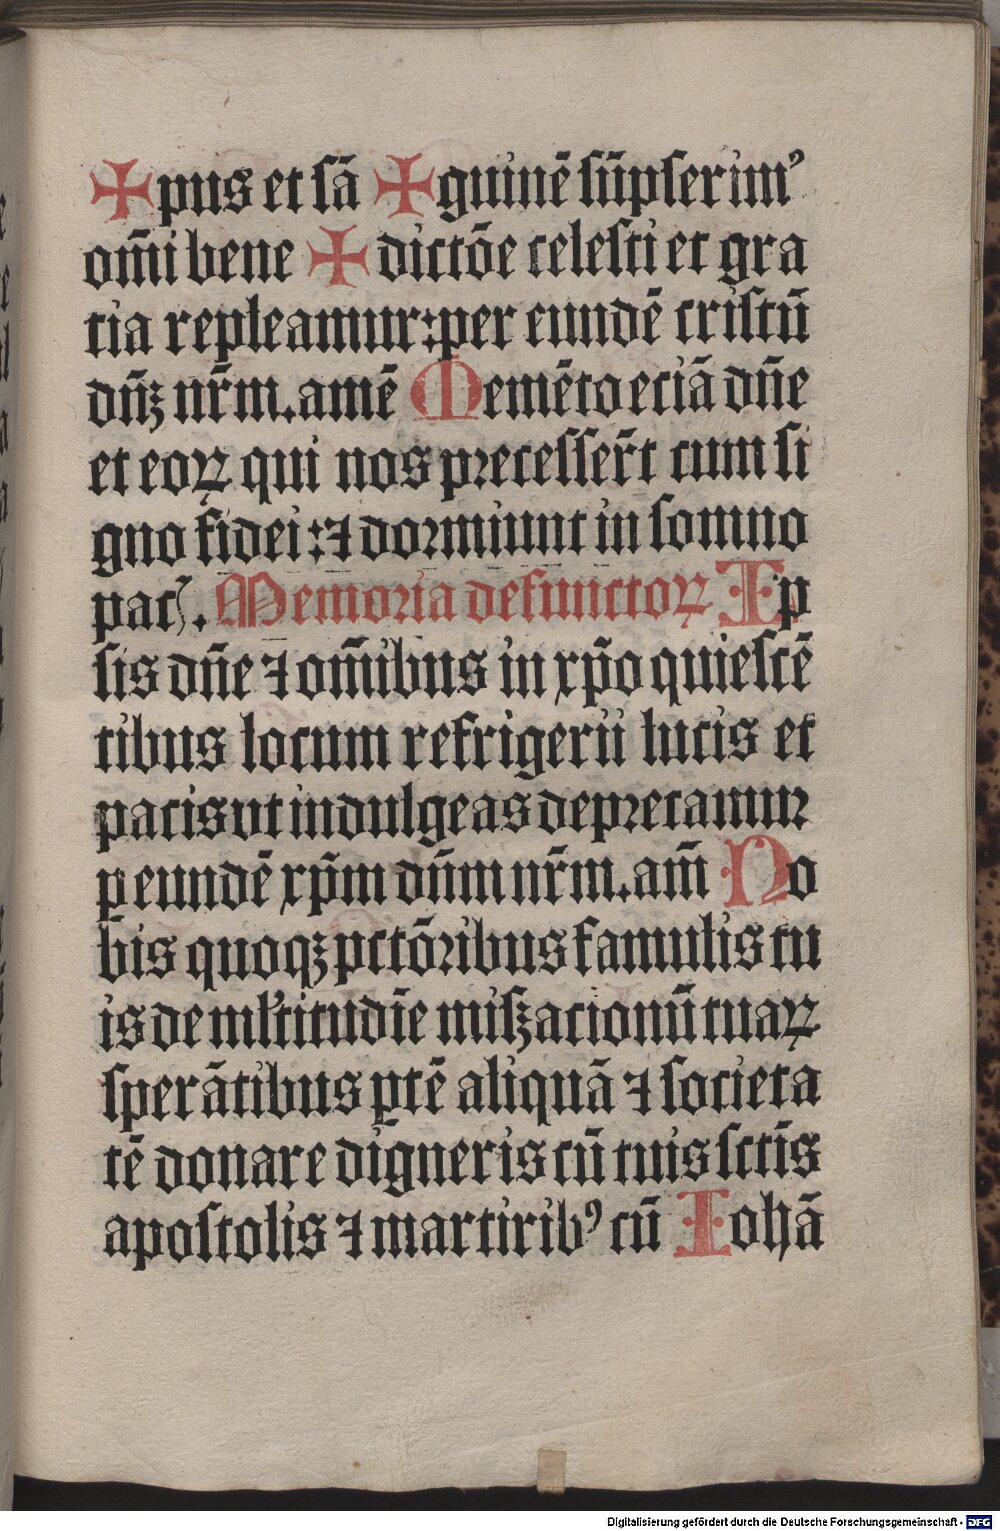 ✠pus et sā ✠guinē sūpserimꝰ
om̄i bene ✠ dictōe celesti et gra
tia repleamur: per eundē cristū
dn̄ꝫ nr̄m. amē Memēto eciā dn̄e
et eoꝝ qui nos precesser̄t cum si
gno fidei: ⁊ dormiunt in somno
pac̛. Memoria defunctoꝝ Ip
sis dn̄e ⁊ om̄ibus in xp̄o quiescē
tibus locum refrigerii lucis et
pacis vt indulgeas deprecamur
ꝑ eundē xp̄m dn̄m nr̄m. am̄ No
bis quoqꝫ pctōribus famulis tu
is de ml̄titudīe misꝫacionū tuaꝝ
sperātibus ꝑtē aliquā ⁊ societa
tē donare digneris cū tuis sctīs
apostolis ⁊ martiribꝰ cū Iohā
Digitalisierung gefördert durch die Deutsche Forschungsgemeinschaft - DFG